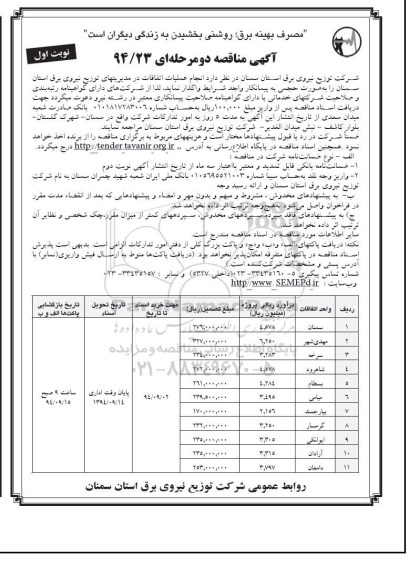 "مصرف بهینه برق: روشنی بخشیدن به زندگی دیگران است"
آگهی مناقصه دومرحله‌ای ۹۴/۲۳
نوبت اول
شـرکت توزیع نیروی برق اسـتان سمنان در نظر دارد انجام عملیات اتفاقات در مدیریتهای توزیع نیروی برق استان
سـمنان را به‌صورت حجمی به پیمانکار واجد شـرایط واگذار نماید، لذا از شـرکت‌های دارای گواهینامه رتبه‌بندی
و صلاحیت شـرکتهای خدماتی یا دارای گواهینامه صلاحیت پیمانکاری معتبر در رشـته نیرو دعوت میگردد جهت
دریافت اسـناد مناقصه پس از واریز مبلغ ۱۰۰,۰۰۰ریال به‌حساب شماره ۰۱۰۱۸۱۷۲۸۳۰۰۶ بانک صادرات شعبه
میدان سعدی از تاریخ انتشار این آگهی به مدت ۵ روز به امور تدارکات شرکت واقع در سمنان- شهرک گلستان-
بلوار کاشف - نبش میدان الغدیر- شرکت توزیع نیروی برق استان سمنان مراجعه نمایند.
ضمناً شـرکت در رد یا قبول پیشنهادها مختار است و هزینه‎های مربوط به برگزاری مناقصه را از برنده اخذ خواهد
نمود. همچنین اسناد مناقصه در پایگاه اطلاع‌رسانی به آدرس http://tender.tavanir.org.ir درج میگردد.
الف – نوع ضمانت‌نامه شرکت در مناقصه :
۱- ضمانت‌نامه بانکی قابل تمدید و معتبر با اعتبار سه ماه از تاریخ انتشار آگهی نوبت دوم
۲- واریز وجه نقد به‌حساب سیبا شماره ۰۱۰۵۶۹۵۵۲۱۰۰۳ بانک ملی ایران شعبه شهید چمران سمنان به نام شرکت
توزیع نیروی برق استان سمنان و ارائه رسید وجه
ب- به پیشنهادهای مخدوش ، مشروط و مبهم و بدون مهر و امضاء و پیشنهادهایی که بعد از انقضاء مدت مقرر
در فراخوان واصل می‌شود به‌هیچ‌وجه ترتیب اثر داده نخواهد شد.
ج) به پیشنهادهای فاقد سپرده، سپرده‌های مخدوش، سپرده‎های کمتر از میزان مقرر، چک شخصی و نظایر آن
ترتیب اثر داده نخواهد شد.
سایر اطلاعات مورد مناقصه در اسناد مناقصه مندرج است.
نکته: دریافت پاکتهای«الف» و«ب» و«ج» و پاکت بزرگ کلی از دفتر امور تدارکات الزامی است. بدیهی است پذیرش
اسـناد مناقصه در پاکتهای متفرقه امکان‌پذیر نخواهد بود. (دریافت پاکت‌ها منوط به ارسـال فیش واریزی(نمابر) با
آدرس پستی و مشخصات شرکت‌کننده است )
شماره تماس پیگیری ۵- ۳۳۴۳۵۱۶۰-۰۲۳ (داخلی ۵۳۲۷) و نمابر : ۳۳۴۳۵۱۵۷- ۰۲۳
وب‌سایت : http/www. SEMEPd.ir
ردیف | واحد اتفاقات | برآورد ریالی پروژه (میلیون ریال) | مبلغ تضمین(ریال) | مهلت خرید اسناد تا تاریخ | تاریخ تحویل اسناد | تاریخ بازگشایی پاکت‌ها الف و ب
۱ | سمنان | ۴,۵۷۸ | ۲۷۶,۰۰۰,۰۰۰ | ۹۴/۰۹/۰۲ | پایان وقت اداری ۱۳۹۴/۰۹/۱۴ | ساعت ۹ صبح ۹۴/۰۹/۱۵
۲ | مهدی‌شهر | ۶,۲۵۰ | ۳۲۷,۰۰۰,۰۰۰
۳ | سرخه | ۳,۲۸۳ | ۲۳۴,۰۰۰,۰۰۰
۴ | شاهرود | ۴,۵۷۸ | ۲۷۲,۰۰۰,۰۰۰
۵ | بسطام | ۴,۲۸۴ | ۲۶۱,۰۰۰,۰۰۰
۶ | میامی | ۳,۴۹۵ | ۲۳۹,۵۰۰,۰۰۰
۷ | بیارجمند | ۲,۱۵۶ | ۱۷۰,۰۰۰,۰۰۰
۸ | گرمسار | ۳,۲۵۰ | ۲۳۲,۰۰۰,۰۰۰
۹ | ایوانکی | ۳,۳۰۵ | ۲۳۵,۰۰۰,۰۰۰
۱۰ | آرادان | ۳,۳۱۵ | ۲۳۵,۰۰۰,۰۰۰
۱۱ | دامغان | ۳,۷۹۷ | ۲۵۳,۰۰۰,۰۰۰
۰۲۱-۸۸۳۴۹۶۷۰-۵
روابط عمومی شرکت توزیع نیروی برق استان سمنان